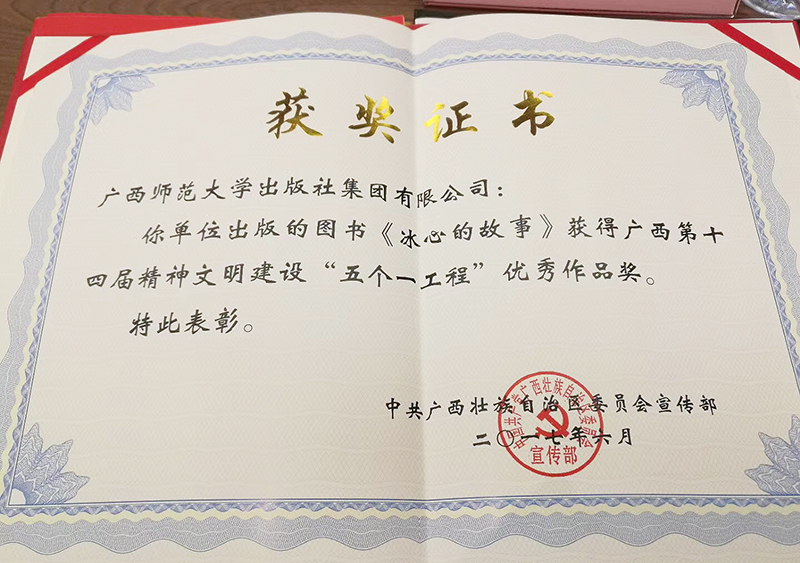 获奖证书
广西师范大学出版社集团有限公司：
你单位出版的图书《冰心的故事》获得广西第十
四届精神文明建设“五个一工程”优秀作品奖。
特此表彰。
中共广西壮族自治区委员会宣传部
二〇一七年六月
中国共产党广西壮族自治区委员会
宣传部